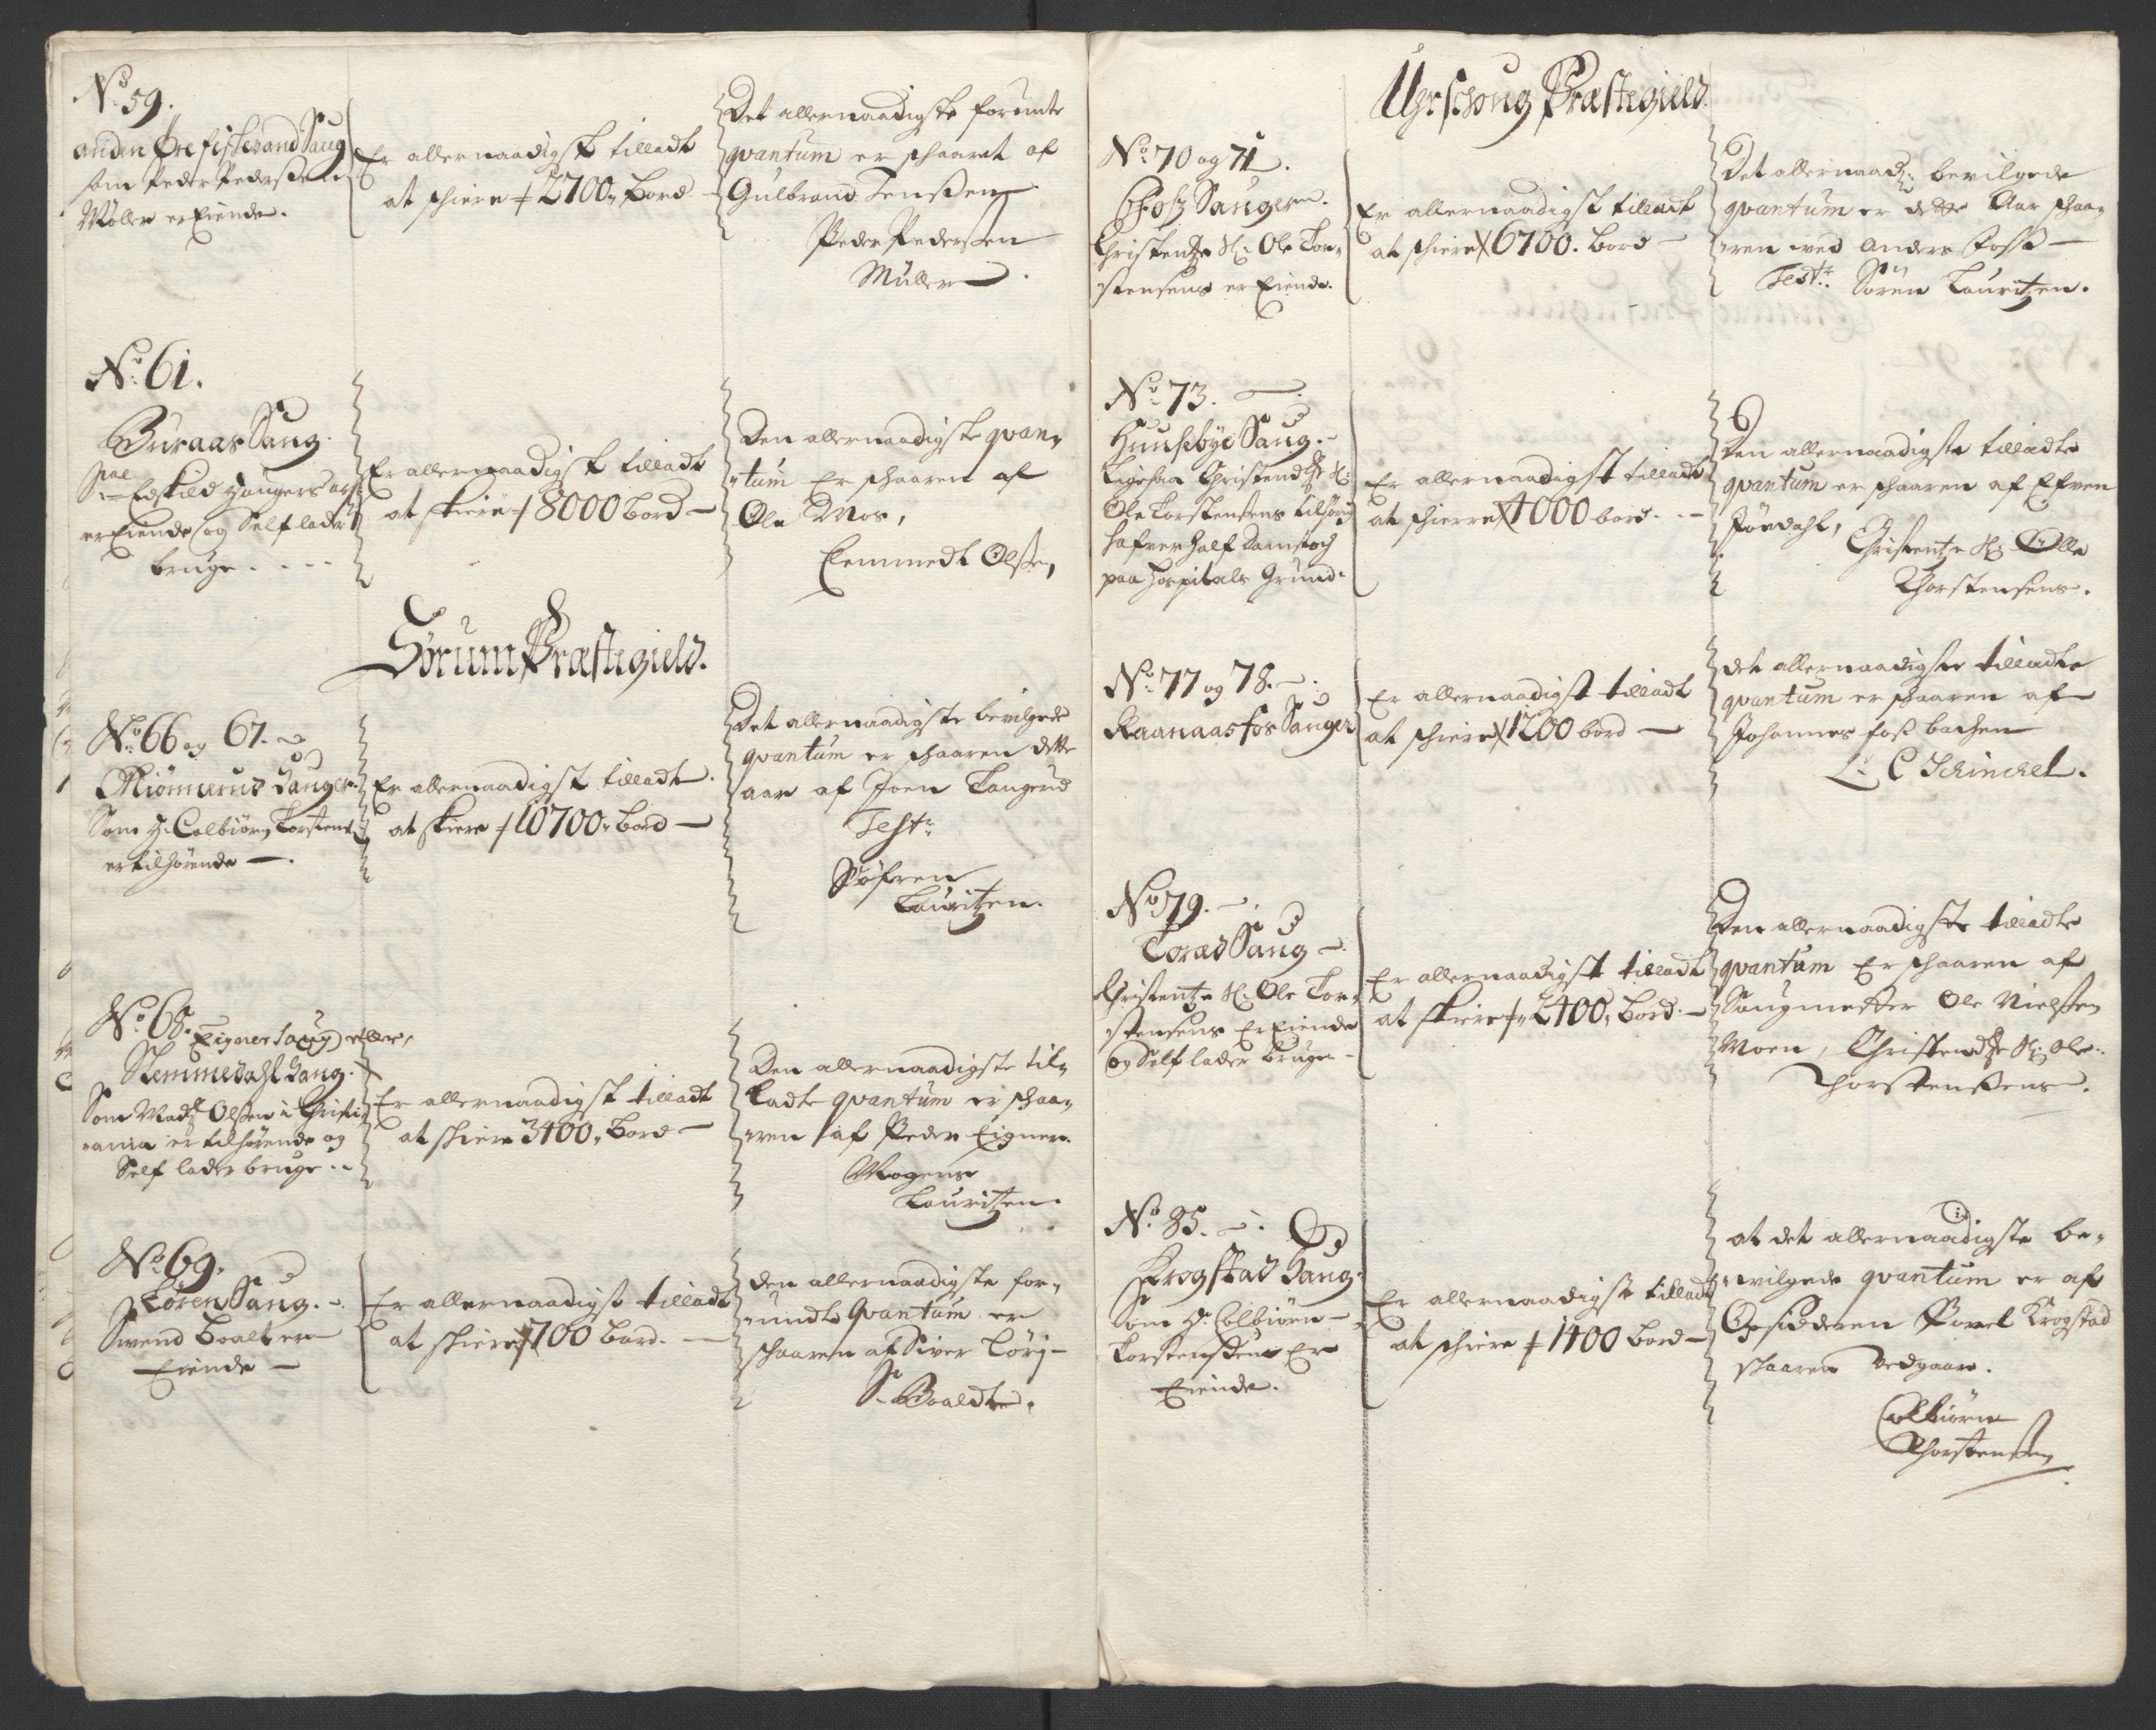 No. 59.
anden Ørefiskevand Saug
som Peder Pederßen
Møller er Eiende.
Er allernaadigst tilladt
at schiere ‡ 2700,, Bord
Det allernaadigste forunte
qvantum er schaaret af
Gulbrand Jenßen
Peder Pederßen
Müller.
No. 61.
Buraas Saug.
Sal. Eskild
er Eiende og Self lader
bruge. - - -
Er allernaadigst tilladt
at skiere ‡ 8000 bord —
Den allernaadigste qvan,,
,,tum Er schaaren af
Ole Moe,
Olß.,
Sørum Præstegield.
No. 66 og 67. —
Miørnerud Sauger.
Som H. Colbiørn Torstens.
er tilhørende —.
Er allernaadigst tilladt
at skiere ‡ 10700,, bord —
Det allernaadigste bevilgede
qvantum er schaaren dette
aar af Joen Tangerud
Test.
Søfren
Lauritzen.
No. 68. Eigner Saug eller,
Stemmedahl Saug.
Som Mads Olßen i Christi
,,ania er tilhørende og
Self lader bruge. -
Er allernaadigst tilladt
at schiere 3400,, Bord —
Den allernaadigste til,,
ladte qvantum er schaa,,
,,ren af Peder Eigner.
Mogens
Lauritzen.
No. 69.
Løren Saug. -
Swend Boalt er
Eiende —
Er allernaadigst tilladt
at schiere ‡ 700 bord. —
den allernaadigste for,,
,,undte Qvantum er
schaaren af Siver Lørj —
S. Boaldt.
Uhrschoug Præstegield.
No. 70 og 71.
Foß Sauger.
Christentze Sl. Ole Tor,,
stensens er Eiende.
Er allernaadigst tilladt
at schiere ‡ 6700. bord —
Det allernaad: bevilgede
qvantum er dette Aar schaa,,
,,ren ved Anders Foss —
Test. Søren Lauritzen.
No. 73. —
Huusebye Saug. -
Ligesaa Christendtz Sl.
Ole Torstensens tilhørig
hafver half Damstoch
paa Hospitals Grund.
Er allernaadigst tilladt
at schierre ‡ 4000 bord. - -
Den allernaadigste tilladte
qvantum er schaaren af Efven
Jørdahl, Christentze Sl. Olle
Thorstensens.
No. 77 og 78. —.
Raanaasfos Sauger
Er allernaadigst tilladt
at schiere ‡ 1200 bord —
det allernaadigste tilladte
qvantum er schaaren af
Johannes foß bachen
L: C Schinchel.
No. 79. —.
Toræd Saug —.
Christentze Sl. Ole Tor,,
,,stensens Er Eiende
og Self lader bruge -
Er allernaadigst tilladt
at skiere ‡ 2400,, Bord. —
Den allernaadigste tilladte
qvantum Er schaaren af
Saugmester Ole Nielßen
Moen, Christendtze Sl. Ole
Thorstenßens.
No. 85. —.
Krogstad Saug.
Som H. Colbiørn —
Torstensen Er
Eiende.
Er allernaadigst tilladt
at schiere ‡ 1400 Bord —
at det allernaadigste be,,
,,vilgede qvantum er af
Opsidderen Povel Krogstad
schaaren Vedgaar.
Colbiørn
Thorstensen